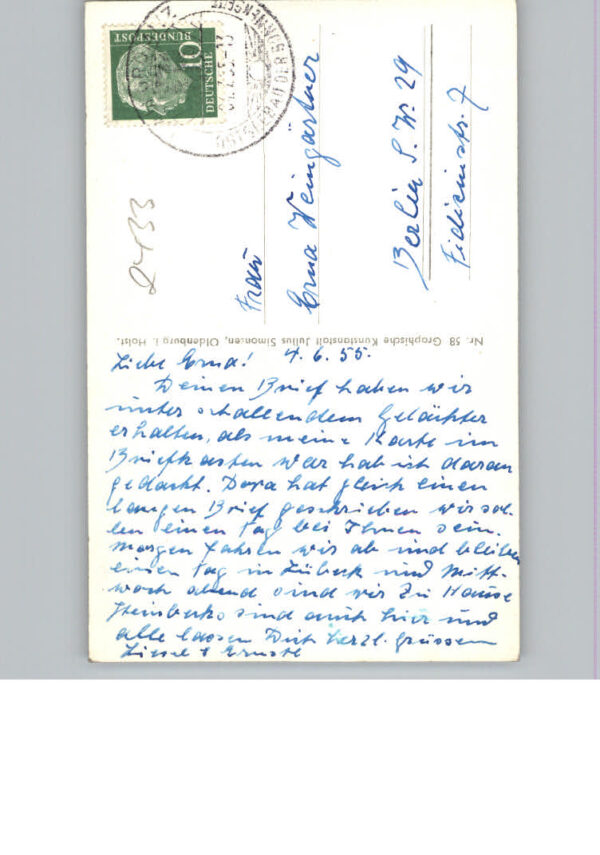 DEUTSCHE
BUNDESPOST
10
OSTSEEBAD DER SONNENSEITE
GRÖMITZ
2433
Frau
Erna Weingärtner
Berlin S.W. 29
Fidicinstr. 7
Nr. 58 Graphische Kunstanstalt Julius Simonsen, Oldenburg i. Holst.
Liebe Erna! 4.6.55.
Deinen Brief haben wir
unter schallendem Gelächter
erhalten, als meine Karte im
Briefkasten war hab ich daran
gedacht. Dora hat gleich einen
langen Brief geschrieben wir sol-
len einen Tag bei Ihnen sein.
Morgen fahren wir ab und bleiben
einen Tag in Lübeck und Mitt-
woch abend sind wir zu Hause
sind auch hier und
alle lassen Dich herzl. grüssen
Liesel + Ernstl